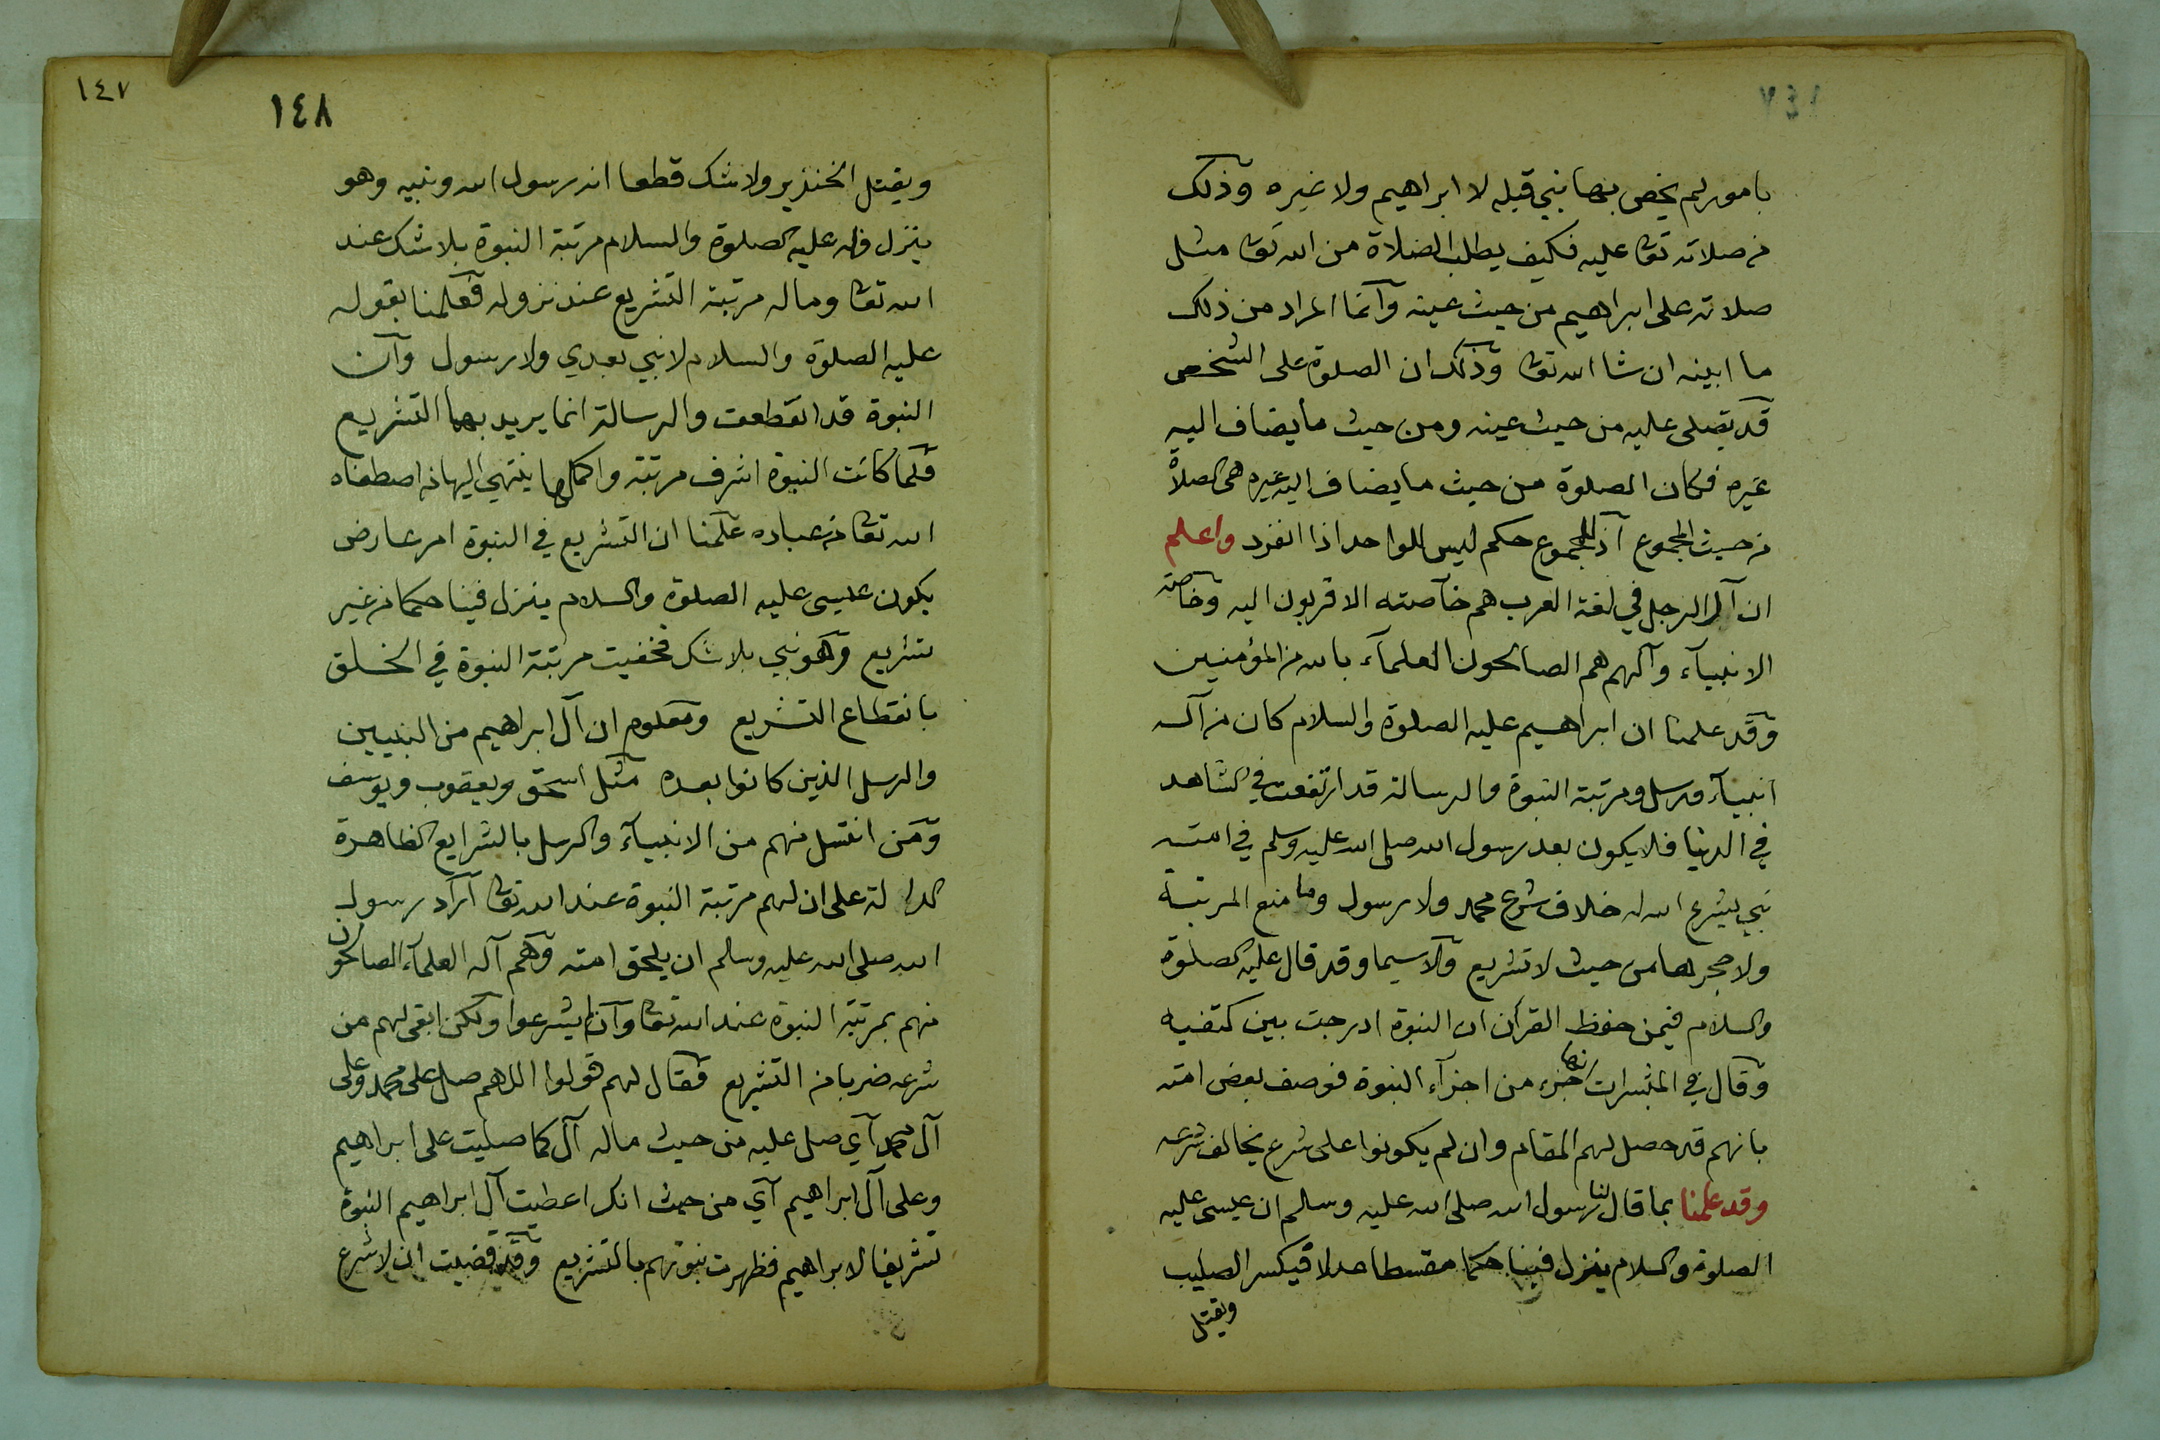 بامور لم يخص بها نبي قبله لا ابراهيم ولا غيره وذلك
من صلاته تعا عليه فكيف يطلب الصلاة من الله تعا مثل
صلاته على ابراهيم من حيث عينه وانما المراد من ذلك
ما ابينه ان شا الله تعا وذلك ان الصلوة على الشخص
قد تصلى عليه من حيث عينه ومن حيث ما يضاف اليه
غيره فكان الصلوة من حيث ما يضاف اليه غيره هى الصلاة
من حيث المجموع اذ للمجموع حكم ليس للواحد اذا انفرد واعلم
ان آل الرجل في لغة العرب هم خآصته الاقربون اليه وخاصة
الانبيآء وآلهم هم الصالحون العلمآء بالله من المؤمنين
وقد علمنا ان ابراهيم عليه الصلوة والسلام كان من آله
انبيآء ورسل ومرتبة النبوة والرسالة قد ارتفعت في الشاهد
في الدنيا فلا يكون بعد رسول الله صلى الله عليه وسلم في امته
نبي يشرع الله له خلاف شرع محمد ولا رسول وما منع المرتبة
ولا حجرها من حيث لا تشريع ولا سيما وقد قال عليه الصلوة
والسلام فيمن حفظ القرآن ان النبوة ادرجت بين كتفيه
وقال في المبشرات انها جزء من اجزآء النبوة فوصف بعض امته
بانهم قد حصل لهم المقام وان لم يكونوا على شرع يخالف شرعه
وقد علمنا بما قال لنا رسول الله صلى الله عليه وسلم ان عيسى عليه
الصلوة والسلام ينزل فينا حكما مقسطا عدلا فيكسر الصليب
ويقتل
١٤٧
١٤٨
ويقتل الخنزير ولا شك قطعا انه رسول الله ونبيه وهو
ينزل فله عليه الصلوة والسلام مرتبة النبوة بلا شك عند
الله تعا وماله مرتبة التشريع عند نزوله فعلمنا بقوله
عليه الصلوة والسلام لا نبي بعدي ولا رسول وان
النبوة قد انقطعت والرسالة انما يريد بهما التشريع
فلما كانت النبوة اشرف مرتبة واكملها ينتهي اليها من اصطفاه
الله تعا من عباده علمنا ان التشريع في النبوة امر عارض
بكون عليسى عليه الصلوة والسلام ينزل فينا حكما من غير
تشريع وهو نبي بلا شك فخفيت مرتبة النبوة في الخلق
بانقطاع التشريع ومعلوم ان آل ابراهيم من النبيين
والرسل الذين كانوا بعده مثل اسحق ويعقوب ويوسف
ومن انتسل منهم من الانبيآء والرسل بالشرايع الظاهرة
الدالة على ان لهم مرتبة النبوة عند الله تعا اراد رسول
الله صلى الله عليه وسلم ان يلحق امته وهم آله العلمآء الصالحون
منهم بمرتبة النبوة عند الله تعا وان لم يشرعوا ولكن ابقى لهم من
شرعه ضربا من التشريع فقال لهم قولوا اللهم صل على محمد وعلى
آل محمد آي صل عليه من حيث ماله آل كما صليت على ابراهيم
وعلى آل ابراهيم آي من حيث انك اعطيت آل ابراهيم النبوة
تشريفا لابراهيم فظهرت نبوتهم بالتشريع وقد قضيت ان لا شرع